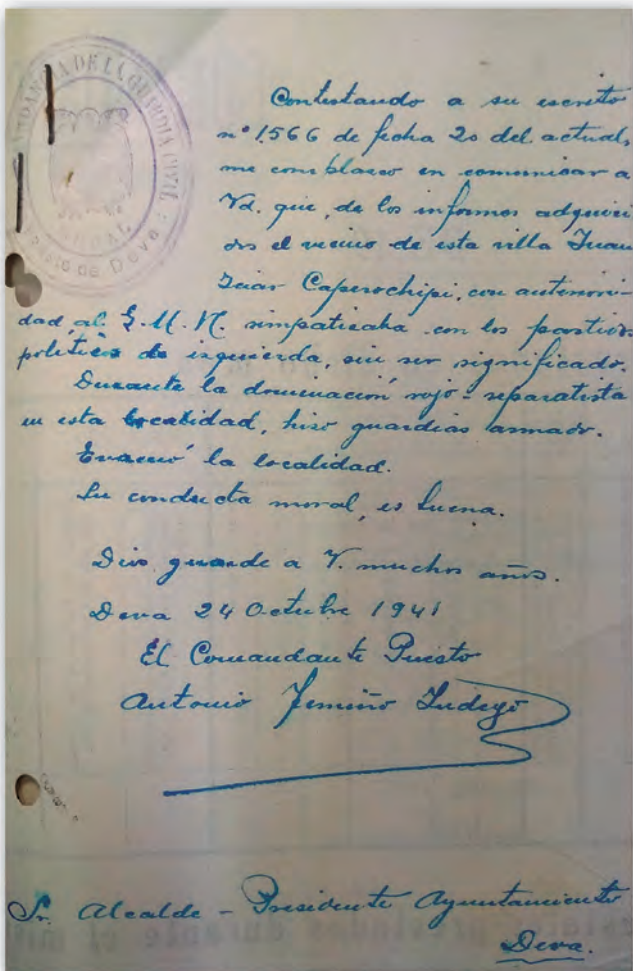 COMANDANCIA DE LA GUARDIA CIVIL
Puesto de Deva
Contestando a su escrito
nº 1566 de fecha 20 del actual,
me complazco en comunicar a
Vd. que, de los informes adquiri
dos el vecino de esta villa Juan
Iciar Caperochipi, con anteriori-
dad, al G. M. N. simpatizaba con los partidos
políticos de izquierda, sin ser significado.
Durante la dominación rojo-separatista
en esta localidad, hizo guardias armado.
Evacuó la localidad.
Su conducta moral, es buena.
Dios guarde a V. muchos años.
Deva 24 Octubre 1941
El Comandante Puesto
Antonio
Sr. Alcalde - Presidente Ayuntamiento
Deva.